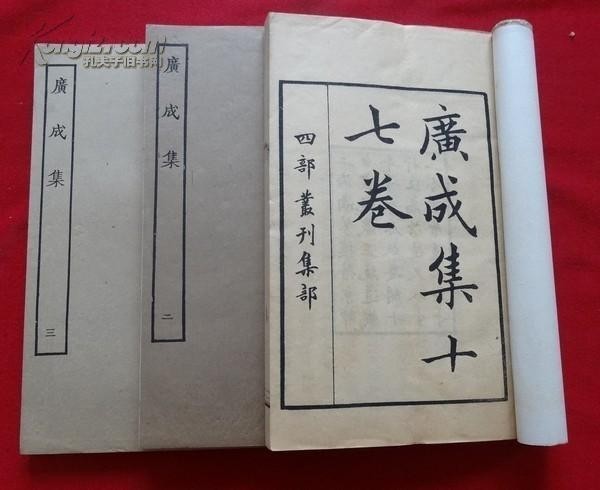 廣成集十
七卷
四部叢刊集部
廣成集
二
廣成集
三
Kongfz.com
孔夫子旧书网